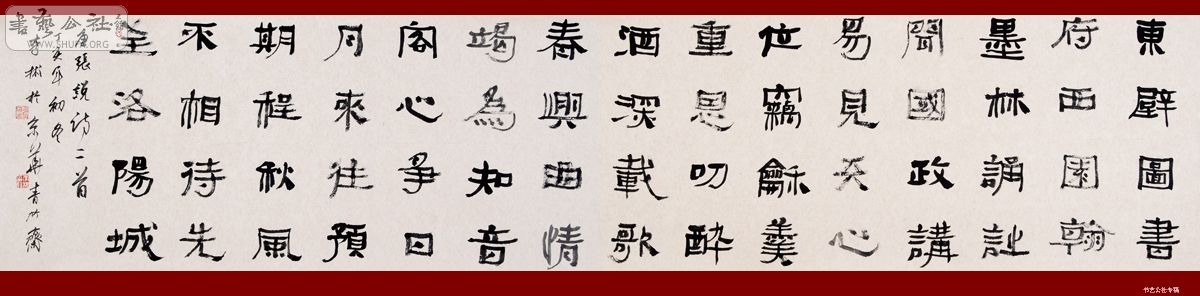 東壁圖書
府西園翰
墨林誦詩
聞國政講
易見天心
位竊龢羹
重恩叨醉
酒深載歌
春興曲情
竭為知音
客心爭日
月來往預
期程秋風
不相待先
至洛陽城
唐張說詩二首
丁亥年初冬
於京華青竹齋
書藝公社
WWW.SHUFA.ORG
书艺公社专稿